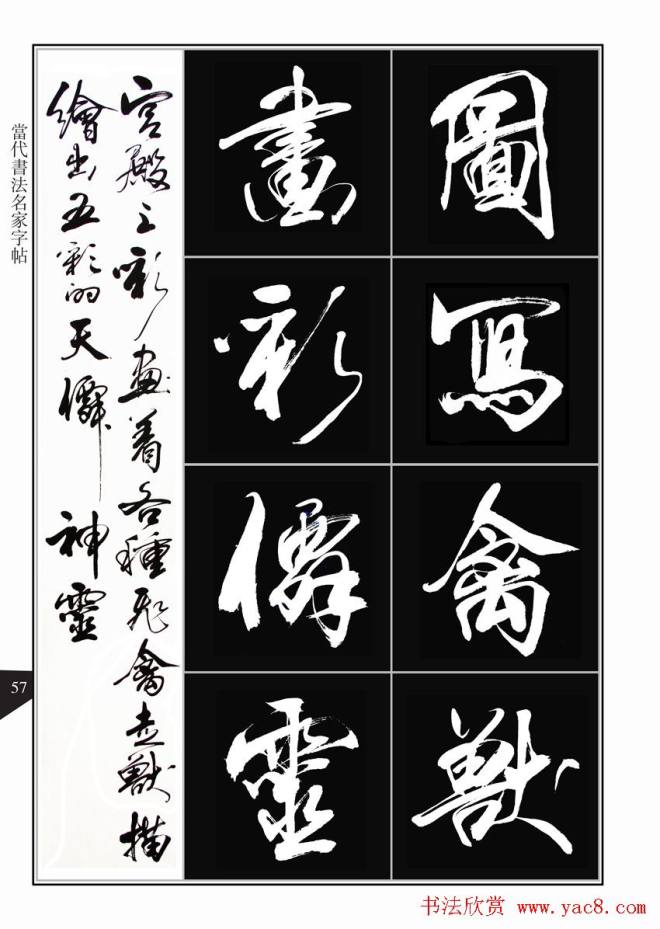 圖寫禽獸
畫彩僊靈
宫殿之彩畫着各種飛禽走獸描
繪出五彩的天僊神靈
當代書法名家字帖
57
书法欣赏 www.yac8.com